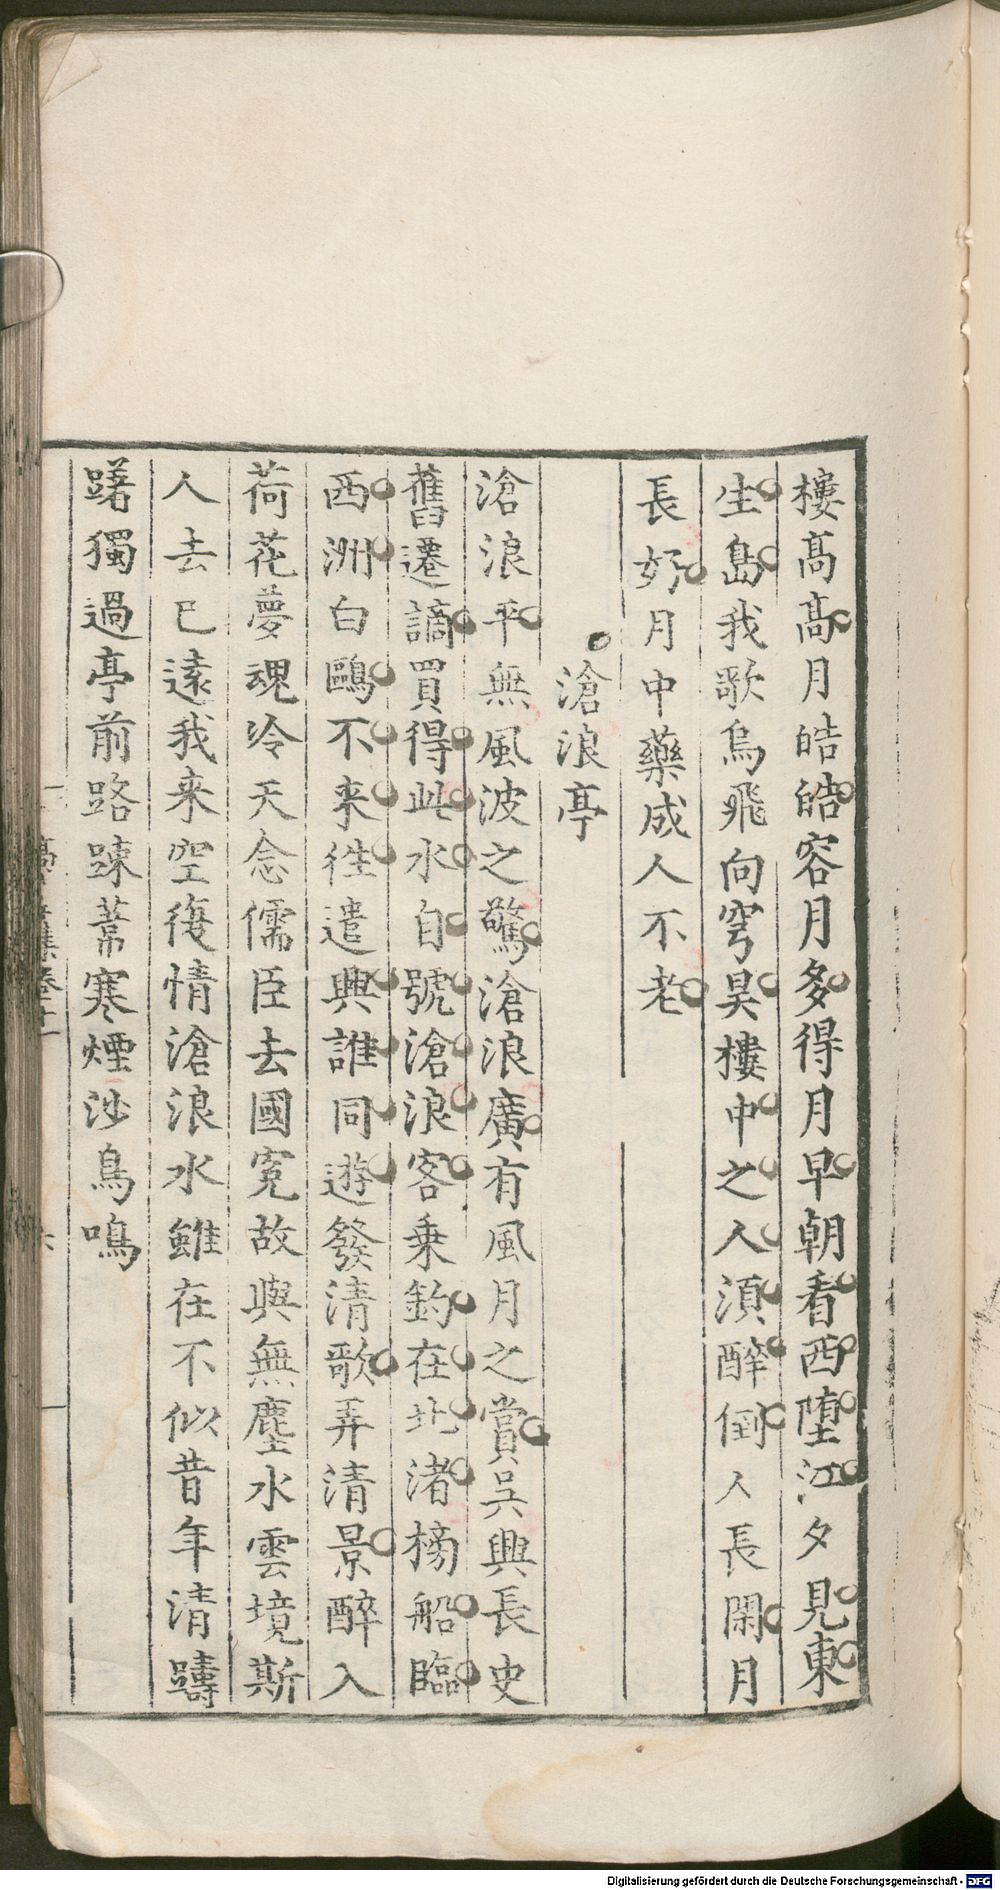 樓高高月皓皓容月多得月早朝看西墮江夕見東
生島我歌烏飛向穹昊樓中之人湏醉倒人長閑月
長好月中藥成人不老
滄浪亭
滄浪平無風波之驚滄浪廣有風月之賞吳興長史
舊遷謫買得此水自號滄浪客乗釣在北渚榜船臨
西洲白鷗不来徃遣興誰同遊發清歌弄清景醉入
荷花夢魂冷天念儒臣去國寃故與無塵水雲境斯
人去已遠我来空復情滄浪水雖在不似昔年清躊
躇獨過亭前路踈葦寒煙沙鳥鳴
Digitalisierung gefördert durch die Deutsche Forschungsgemeinschaft - DFG